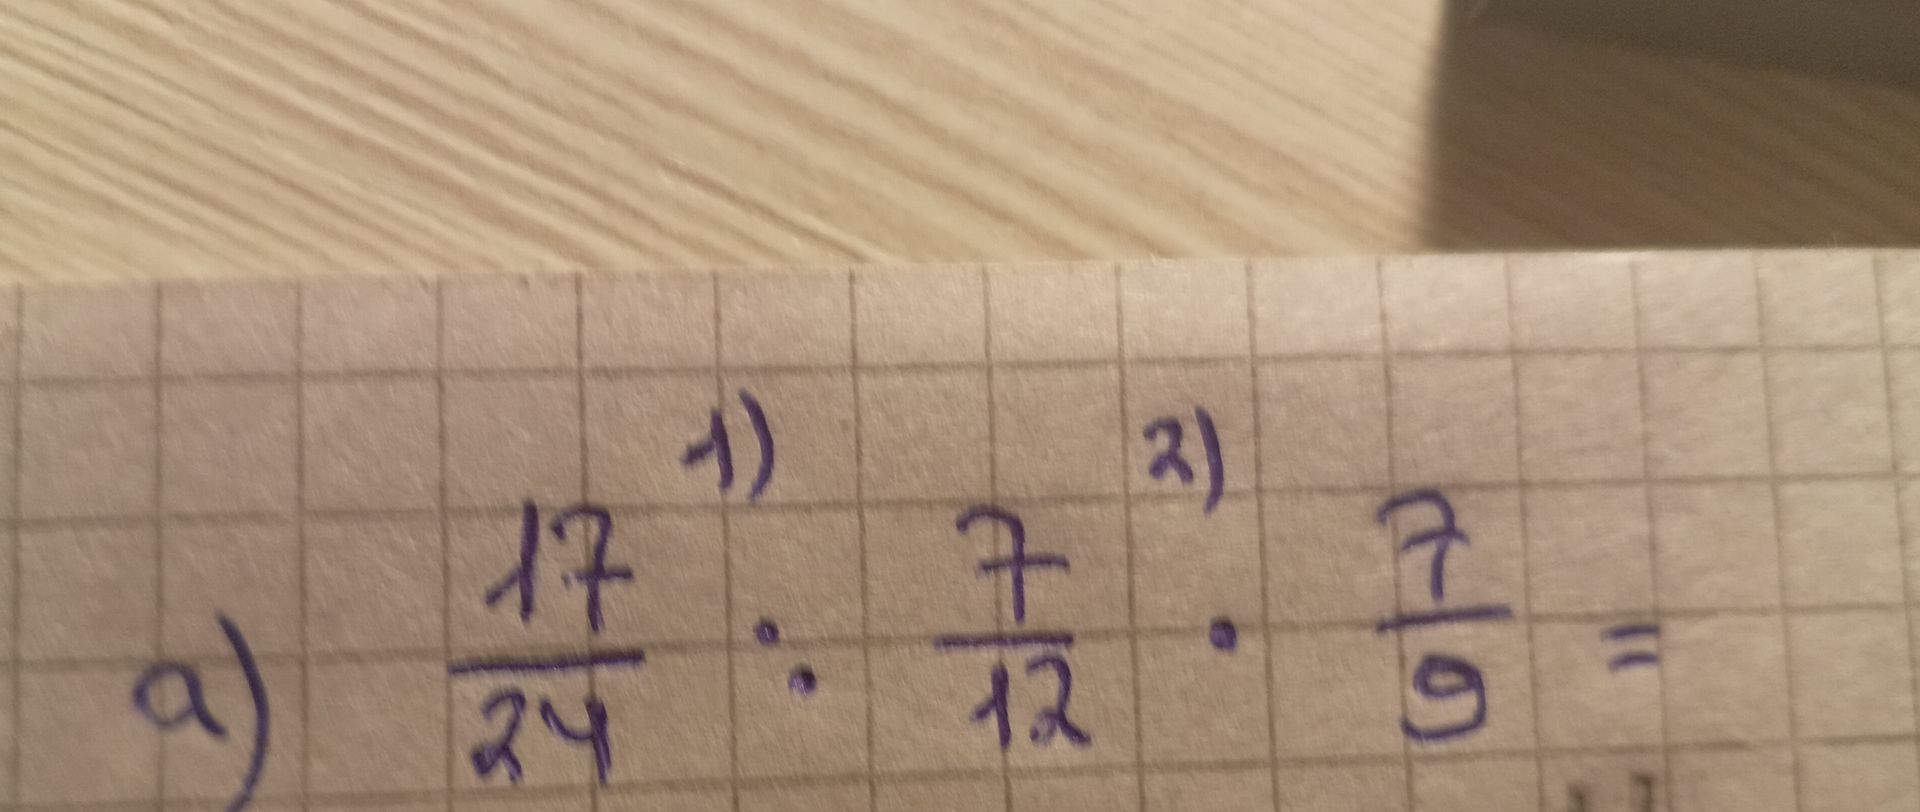 1) 2)
а) 17/24 : 7/12 · 7/9 =